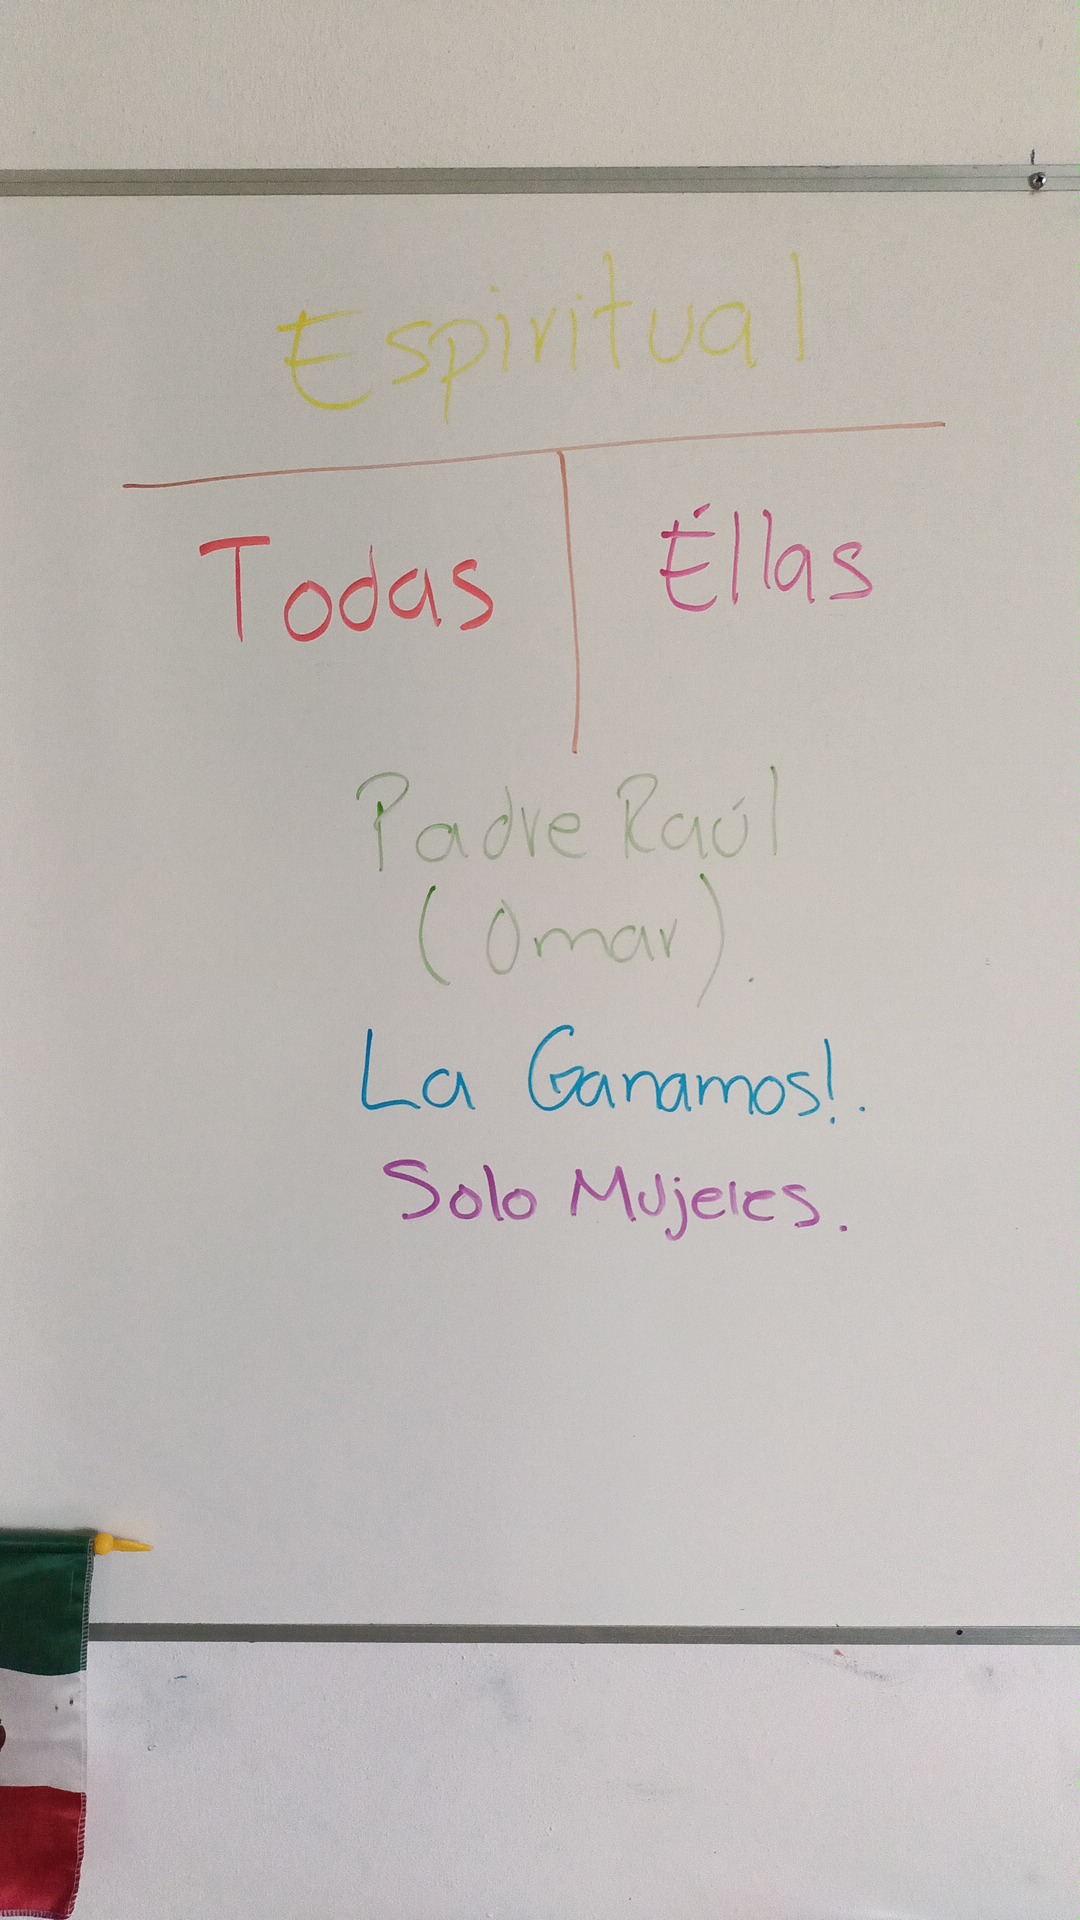 Espiritual
Todas
Éllas
Padre Raúl
(Omar).
La Ganamos!.
Solo Mujeres.